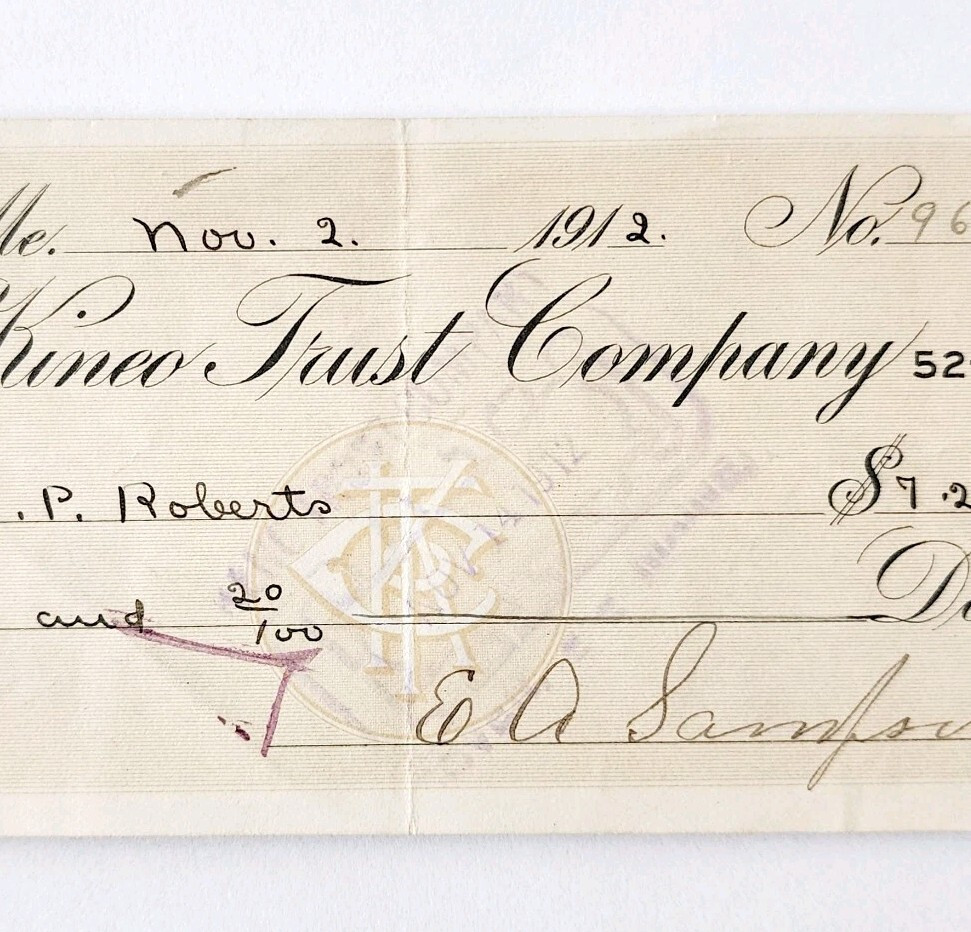 Me. Nov. 2. 1912. No. 96
Kineo Trust Company 52
. P. Roberts $7.2
and 20/100 Do
E A Sampso